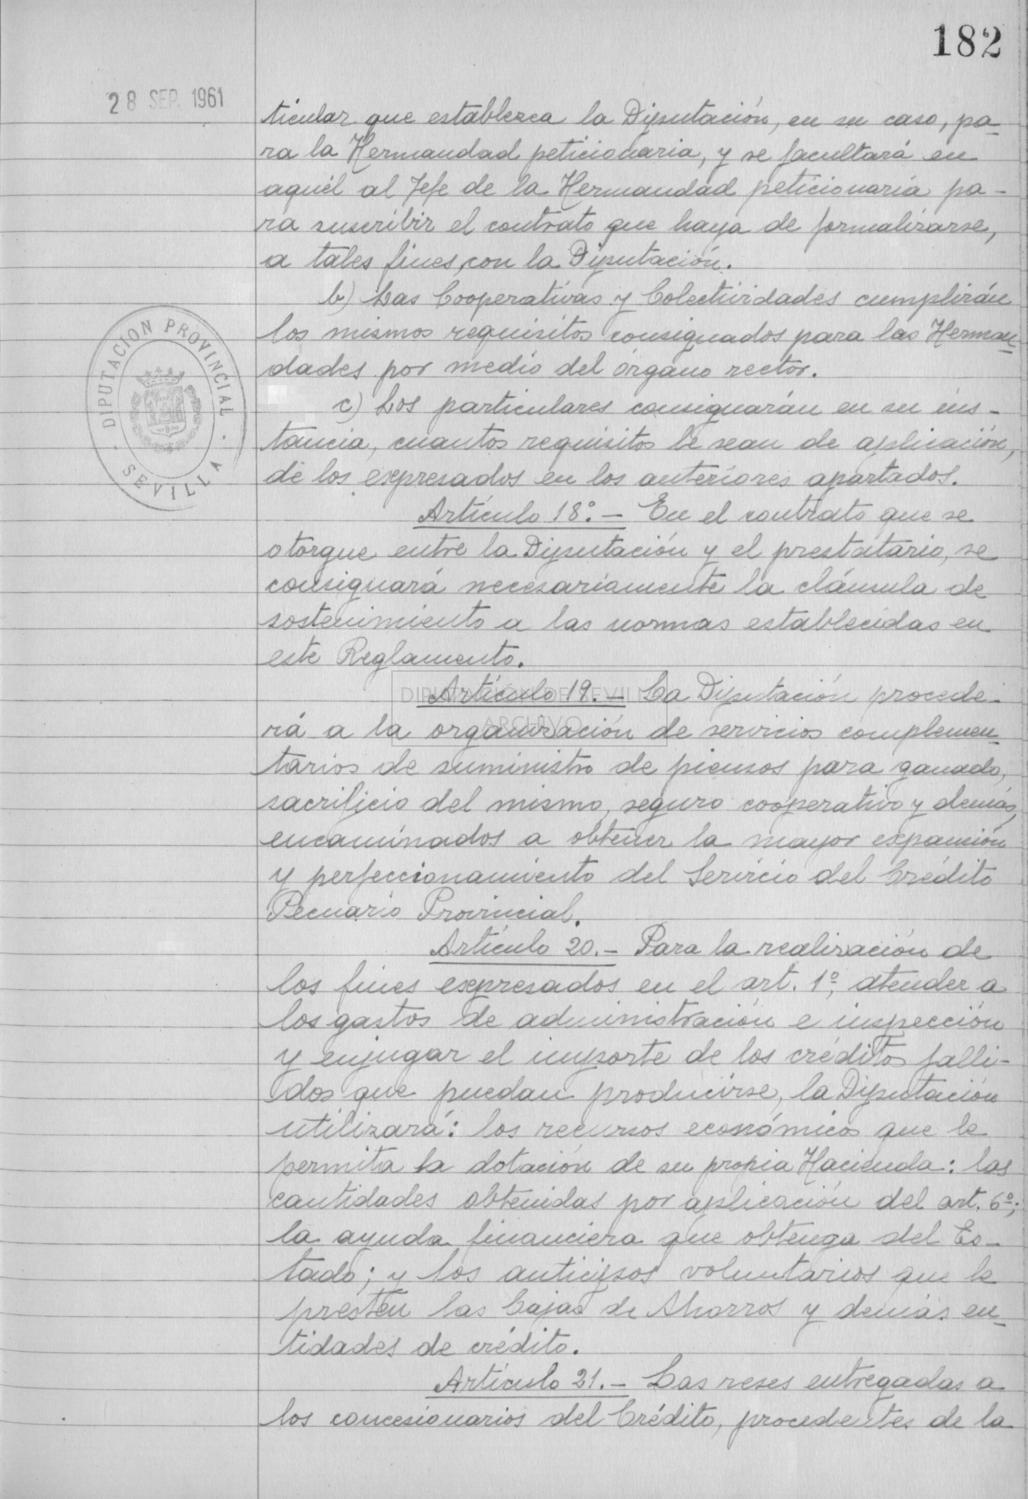 182
28 SEP. 1961
ticular que establezca la Diputación, en su caso, pa-
ra la Hermandad peticionaria, y se facultará en
aquél al Jefe de la Hermandad peticionaria pa-
ra suscribir el contrato que haya de formalizarse,
a tales fines, con la Diputación.
b) Las Cooperativas y Colectividades cumplirán
los mismos requisitos consignados para las Herman-
dades por medio del órgano rector.
c) Los particulares consignarán en su ins-
tancia, cuantos requisitos le sean de aplicación,
de los expresados en los anteriores apartados.
Artículo 18º.- En el contrato que se
otorgue entre la Diputación y el prestatario, se
consignará necesariamente la cláusula de
sostenimiento a las normas establecidas en
este Reglamento.
Artículo 19.- La Diputación procede-
rá a la organización de servicios complemen-
tarios de suministro de piensos para ganado,
sacrificio del mismo, seguro cooperativo y demás,
encaminados a obtener la mayor expansión
y perfeccionamiento del Servicio del Crédito
Pecuario Provincial.
Artículo 20.- Para la realización de
los fines expresados en el art. 1º, atender a
los gastos de administración e inspección
y enjugar el importe de los créditos falli-
dos que puedan producirse, la Diputación
utilizará: los recursos económicos que le
permita la dotación de su propia Hacienda: las
cantidades obtenidas por aplicación del art. 6º;
la ayuda financiera que obtenga del Es-
tado; y los anticipos voluntarios que le
presten las Cajas de Ahorros y demás en-
tidades de crédito.
Artículo 21.- Las reses entregadas a
los concesionarios del Crédito, procedentes de la
DIPUTACION PROVINCIAL
SEVILLA
DIPUTACIÓN DE SEVILLA
ARCHIVO